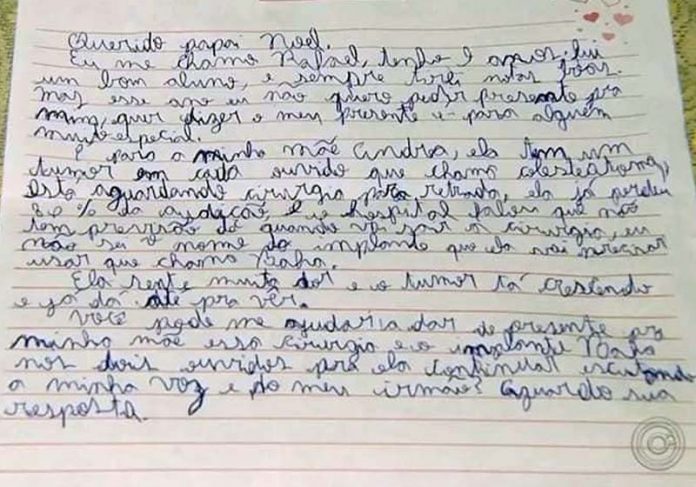 Querido papai Noel.
Eu me chamo Rafael, tenho 9 anos, fui
um bom aluno, e sempre tirei notas boas.
Mas esse ano eu não quero pedir presente pra
mim, quer dizer o meu presente é para alguém
muito especial.
É para a minha mãe Andrea, ela tem um
tumor em cada ouvido que chama colesteatoma,
está aguardando cirurgia para retirada, ela já perdeu
80% da audição, e o hospital falou que não
tem previsão de quando vai sair a cirurgia, eu
não sei o nome do implante que ela vai precisar
usar que chama Baha.
Ela sente muita dor e o tumor tá crescendo
e já dá até pra vêr.
Você pode me ajudar a dar de presente pra
minha mãe essa cirurgia e o implante Baha
nos dois ouvidos pra ela continuar escutando
a minha voz e do meu irmão? Aguardo sua
resposta.